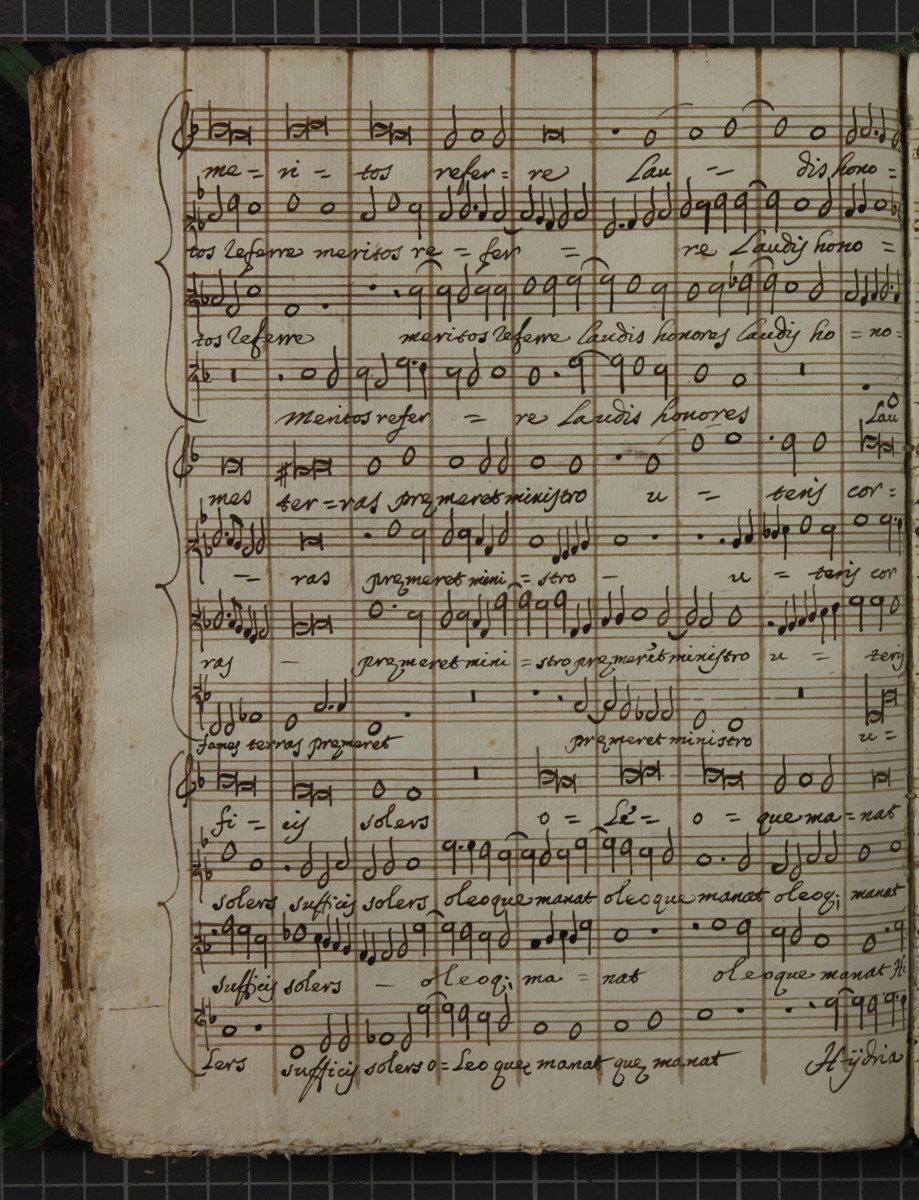 me = ri = tos refer = re Lau - dis hono =
tos referre meritos re = fer = re Laudis hono =
tos referre meritos referre laudis honores laudis ho = no =
Meritos refer = re Laudis honores Lau
mes ter = ras premeret ministro u = teris cor =
- ras premeret mini = stro - u = teris cor
ras - premeret mini = stro premeret ministro u = teris
fames terras premeret premeret ministro u =
fi = cis solers o = Le = o = que ma = nat
solers sufficis solers oleoque manat oleoque manat oleoq; manat
sufficis solers - oleoq; ma = nat oleoque manat H
Lers sufficis solers o = Leo que manat que manat Hÿdria